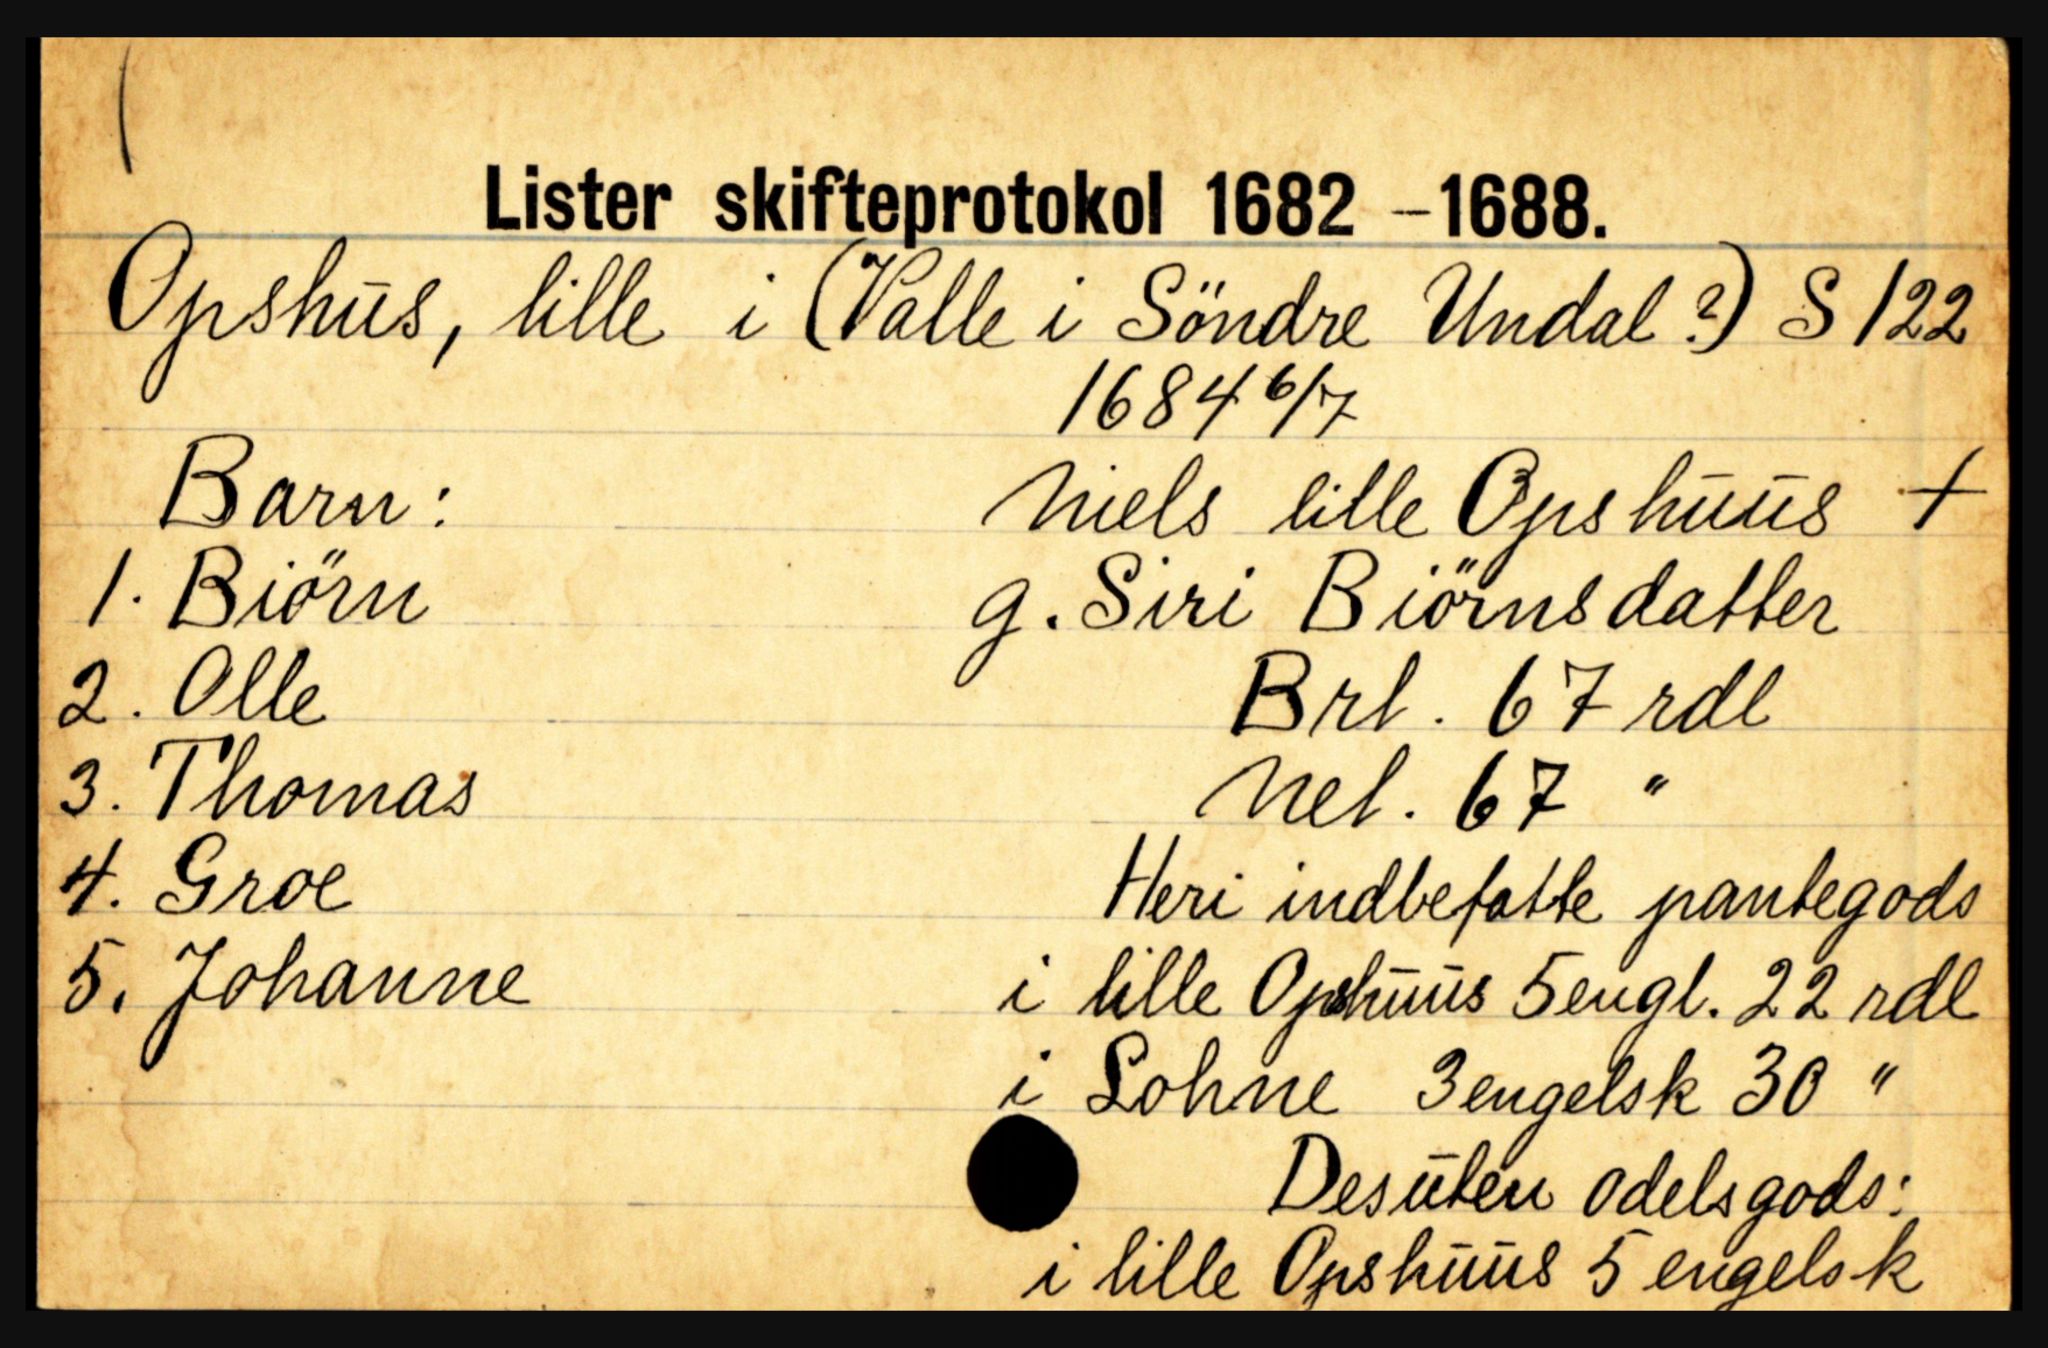 Lister skifteprotokol 1682 – 1688.
Opshūs, lille i (Valle i Söndre Undal?) S 122
1684 6/7
Barn:
Niels lille Opshūūs +
1. Biörn
g. Siri Biörnsdatter
2. Olle
Brl. 67 rdl
3. Thomas
Nel. 67 "
4. Groe
Heri indbefatte pantegods
5. Johanne
i lille Opshūūs 5 engl. 22 rdl
i Lohne 3 engelsk 30 "
Desūten odelsgods:
i lille Opshūūs 5 engelsk